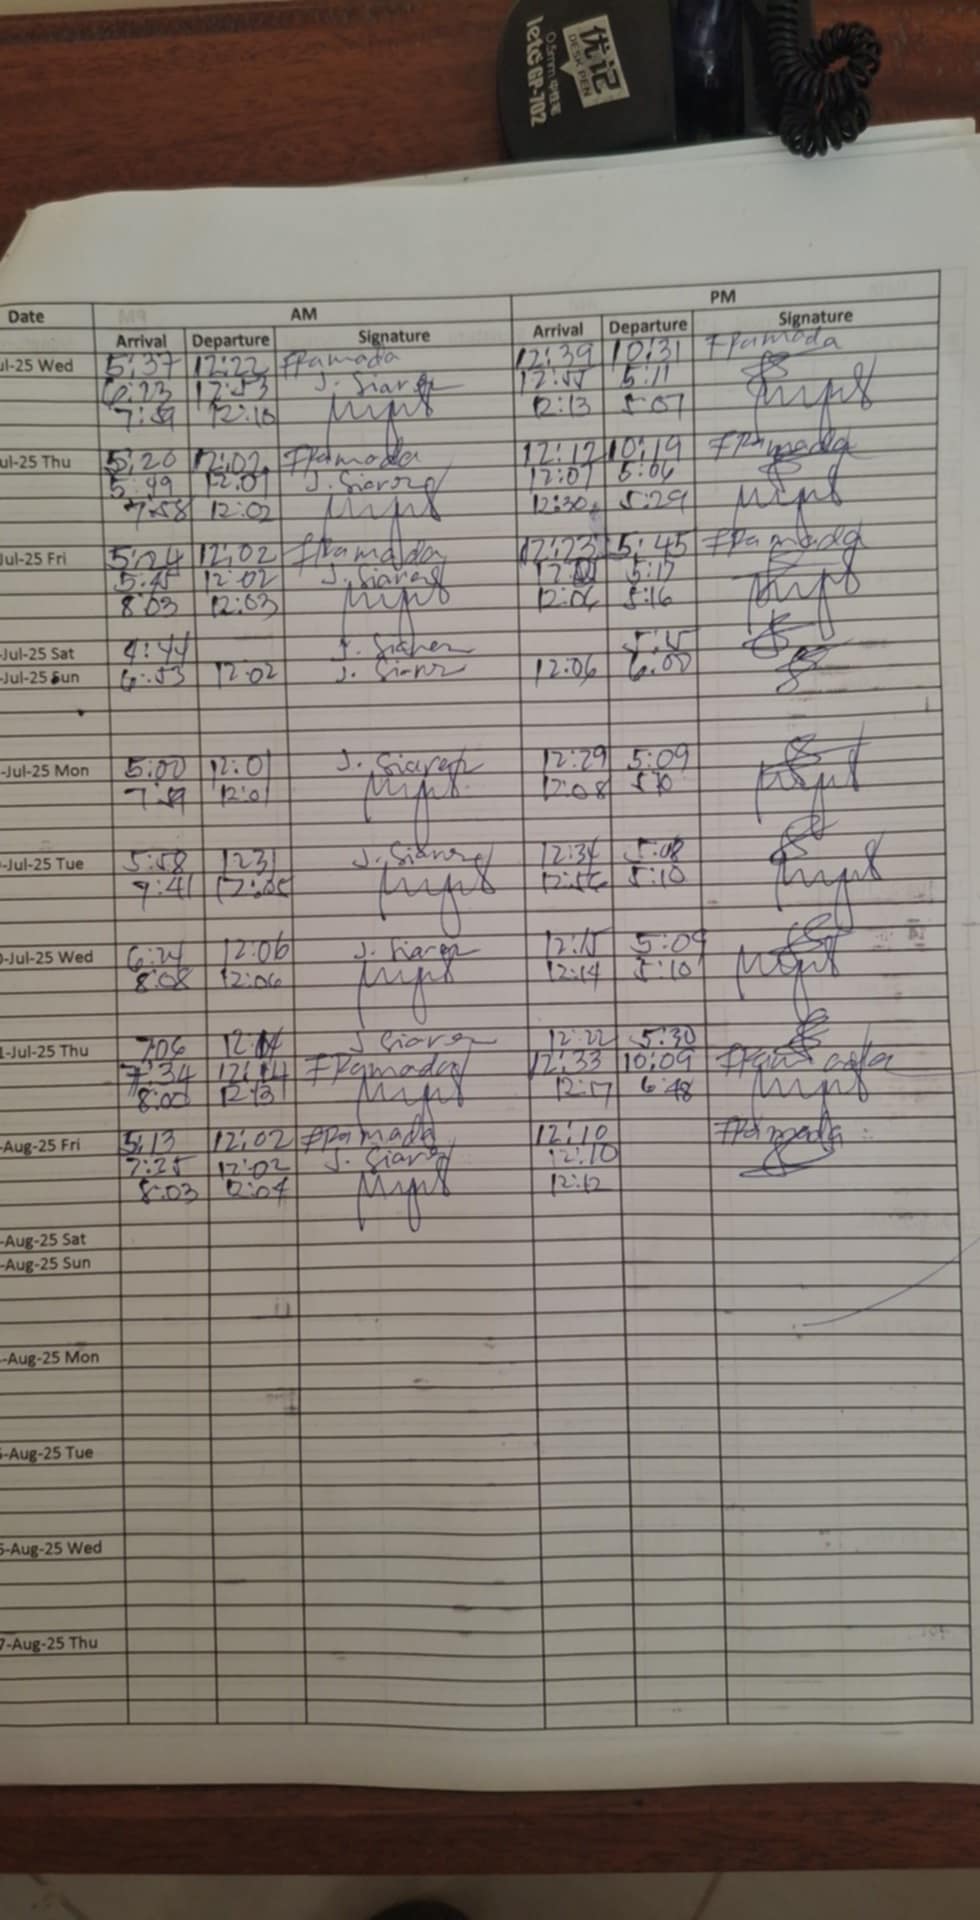 优记
DESK PEN
0.5mm 中性笔
letG GP-702
Date AM PM
Arrival Departure Signature Arrival Departure Signature
ul-25 Wed 5:37 12:22 FRamada 12:39 10:31 FRamada
6:23 12:53 J. Siarez 12:55 5:11
7:59 12:10 12:13 5:07
ul-25 Thu 5:20 12:02 FRamada 12:12 10:19 FRamada
5:49 12:01 J. Siarez 12:07 5:06
7:58 12:02 12:30 5:29
Jul-25 Fri 5:24 12:02 FRamada 12:23 5:45 FRamada
5:45 12:02 J. Siarez 5:17
8:03 12:03 12:06 5:16
-Jul-25 Sat 4:44 J. Siarez 5:15
-Jul-25 Sun 6:53 12:02 J. Siarez 12:06 6:00
-Jul-25 Mon 5:00 12:01 J. Siarez 12:29 5:09
7:59 12:01 12:08 5:10
-Jul-25 Tue 5:58 1231 J. Siarez 12:34 5:08
9:41 12:05 12:56 5:10
-Jul-25 Wed 6:24 12:06 J. Siarez 12:15 5:09
8:08 12:06 12:14 5:10
1-Jul-25 Thu 7:06 12:14 J Siarez 12:22 5:30
7:34 12:14 FRamada 12:33 10:09 FRamada
8:00 12:31 12:17 6:48
-Aug-25 Fri 5:13 12:02 FRamada 12:10 FRamada
7:25 12:02 J. Siarez 12:10
8:03 12:04 12:12
-Aug-25 Sat
-Aug-25 Sun
-Aug-25 Mon
-Aug-25 Tue
-Aug-25 Wed
7-Aug-25 Thu